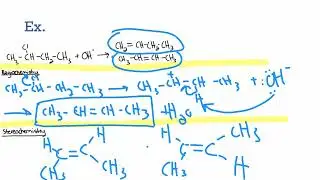 Ex.
Cl
CH₃-CH-CH₂-CH₃ + OH⁻ → CH₂=CH-CH₂CH₃
CH₃-CH=CH-CH₃
Regiochemistry
Cl
CH₃-CH-CH₂-CH₃ → CH₃-CH-CH-CH₃ + :OH⁻
H
CH₃-CH=CH-CH₃ + H₂O
Stereochemistry
H CH₃ CH₃ H
C=C C=C
CH₃ H
CH₃ H